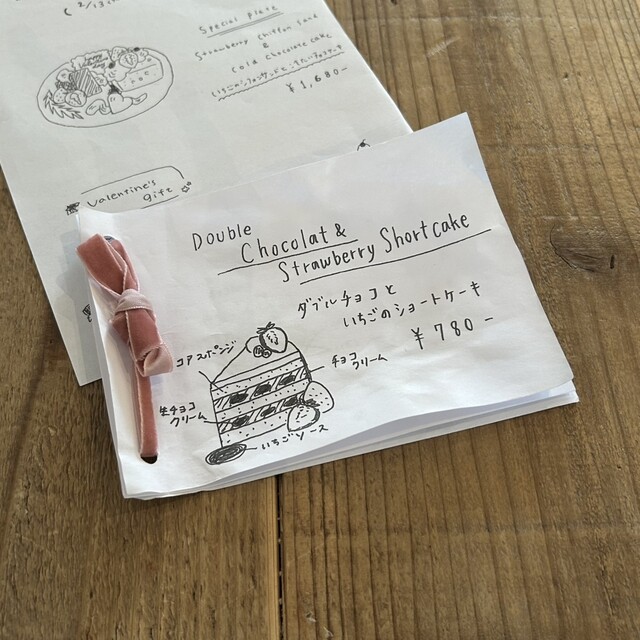 Special plate
Strawberry chiffon sand
&
Cold Chocolate cake
¥1,680-
Valentine's
gift
Double
Chocolat &
Strawberry Shortcake
ダブルチョコと
いちごのショートケーキ
¥780-
ココアスポンジ
チョコ
クリーム
生チョコ
クリーム
いちごソース